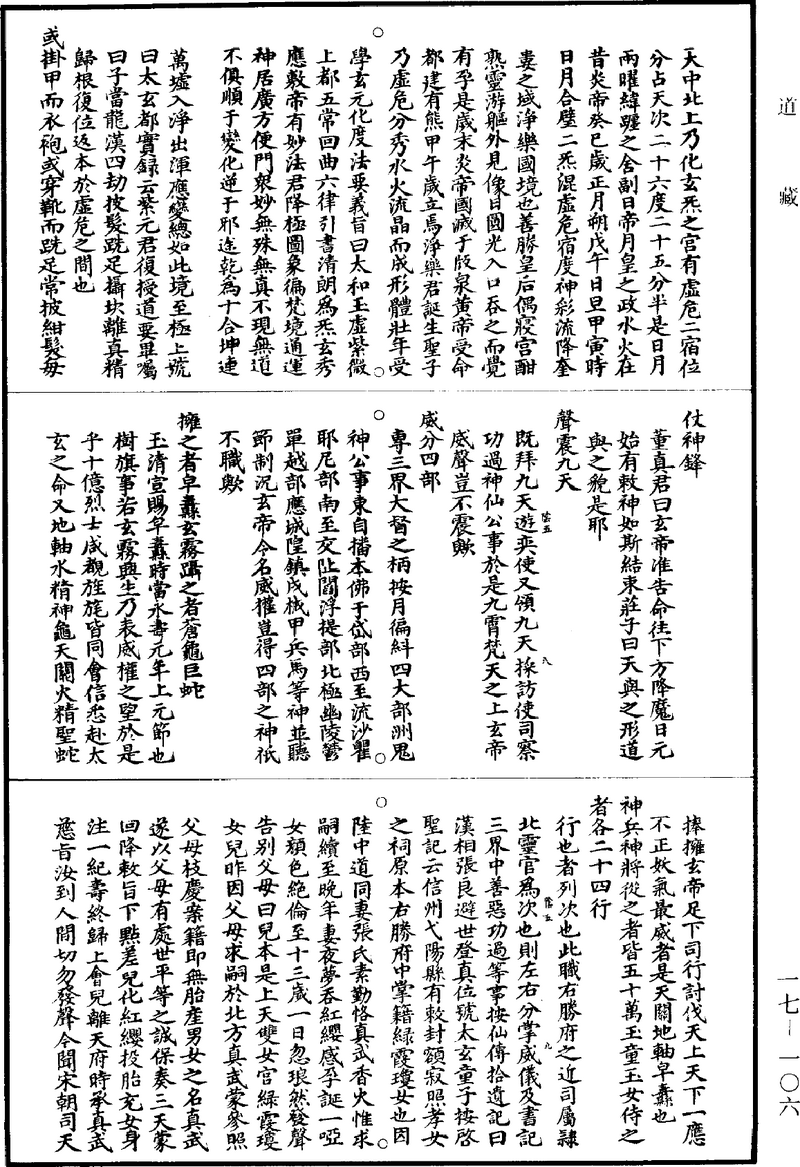 道藏
天中北上乃化玄炁之宫有虛危二宿位
分占天次二十六度二十五分半是日月
兩曜緯躔之舍副日帝月皇之政水火在
昔炎帝癸巳歲正月朔戊午日旦甲寅時
日月合璧二炁混虛危宿度神彩流降奎
婁之域淨樂國境也善勝皇后偶寢宫酣
熟靈游軀外見像日圓光入口吞之而覺
有孕是歲末炎帝國滅于版泉黄帝受命
都建有熊甲午歲立焉淨樂君誕生聖子
乃虛危分秀水火流晶而成形體壯年受
學玄元化度法要義旨曰太和玉虛紫微
上都五常回曲六律引書清朗爲炁玄秀
應敷帝有妙法君降極圖象徧梵境通運
神居廣方便門衆妙無殊無真不現無道
不俱順于變化逆于邪迄乾爲十合坤連
萬墟入淨出渾應變總如此境至極上號
曰太玄都寳録云紫元君復授道要畢囑
曰子當龍漢四劫披髮跣足攝坎離真精
歸根復位返本於虛危之間也
或掛甲而衣袍或穿靴而跣足常披紺髮每
仗神鋒
董真君曰玄帝准告命往下方降魔日元
始有敕神如斯結束莊子曰天與之形道
與之貌是耶
聲震九天
既拜九天遊奕使又領九天採訪使司察
功過神仙公事於是九霄梵天之上玄帝
威聲豈不震歟
威分四部
專三界大督之柄按月徧糾四大部洲鬼
神公事東自播本佛于岱部西至流沙瞿
耶尼部南至交阯閻浮提部北極幽陵鬱
單越部應城隍鎮戍械甲兵馬等神並聽
節制況玄帝令名威權豈得四部之神祇
不職歟
擁之者皁纛玄霧躡之者蒼龜巨蛇
玉清宣賜皁纛時當永壽元年上元節也
樹旗事若玄霧興生乃表威權之望於是
乎十億烈士咸觀旌旄皆同會信悉赴太
玄之命又地軸水精神龜天關火精聖蛇
捧擁玄帝足下司行討伐天上天下一應
不正妖氣最威者是天關地軸皁纛也
神兵神將從之者皆五十萬玉童玉女侍之
者各二十四行
行也者列次也此職右勝府之近司屬隷
北靈官爲次也則左右分掌威儀及書記
三界中善惡功過等事按仙傳拾遺記曰
漢相張良避世登真位號太玄童子按啓
聖記云信州弋陽縣有敕封額寂照孝女
之祠原本右勝府中掌籍緑霞瓊女也因
陸中道同妻張氏素勤恪真武香火惟求
嗣續至晚年妻夜夢吞紅纓感孕誕一啞
女顔色絶倫至十三歲一日忽琅然發聲
告别父母曰兒本是上天雙女宫緑霞瓊
女兒昨因父母求嗣於北方真武蒙參照
父母枝慶案籍即無胎産男女之名真武
遂以父母有處世平等之誠保奏三天蒙
回降敕旨下點差兒化紅纓投胎充女身
注一紀壽終歸上會兒離天府時承真武
慈旨汝到人間切勿發聲今聞宋朝司天
一七—一〇六